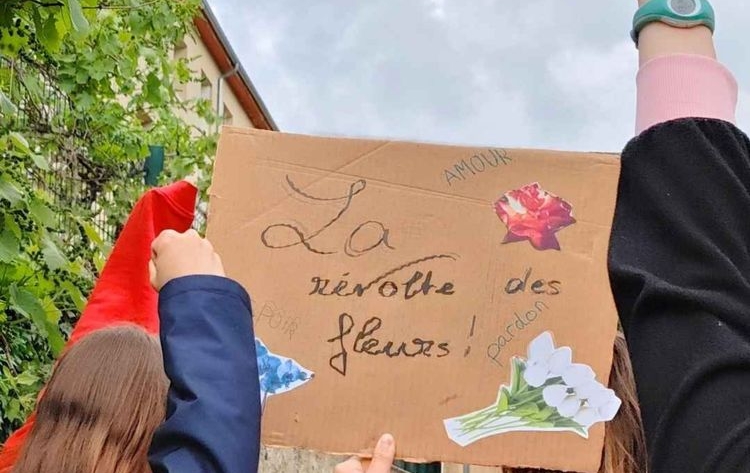 AMOUR
La
révolte des
fleurs!
pardon